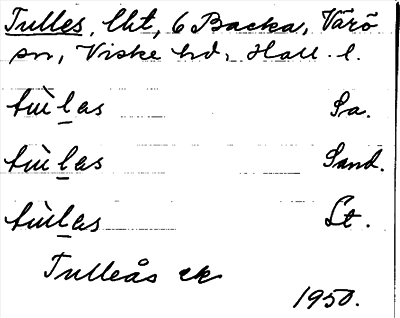 Tulles, lht, 6 Backa, Värö
sn, Viske hd, Hall. l.
tu̇̀l̲as Sa.
tu̇̀l̲as Sand.
tu̇̀l̲as Lt.
Tulleås ek
1950.